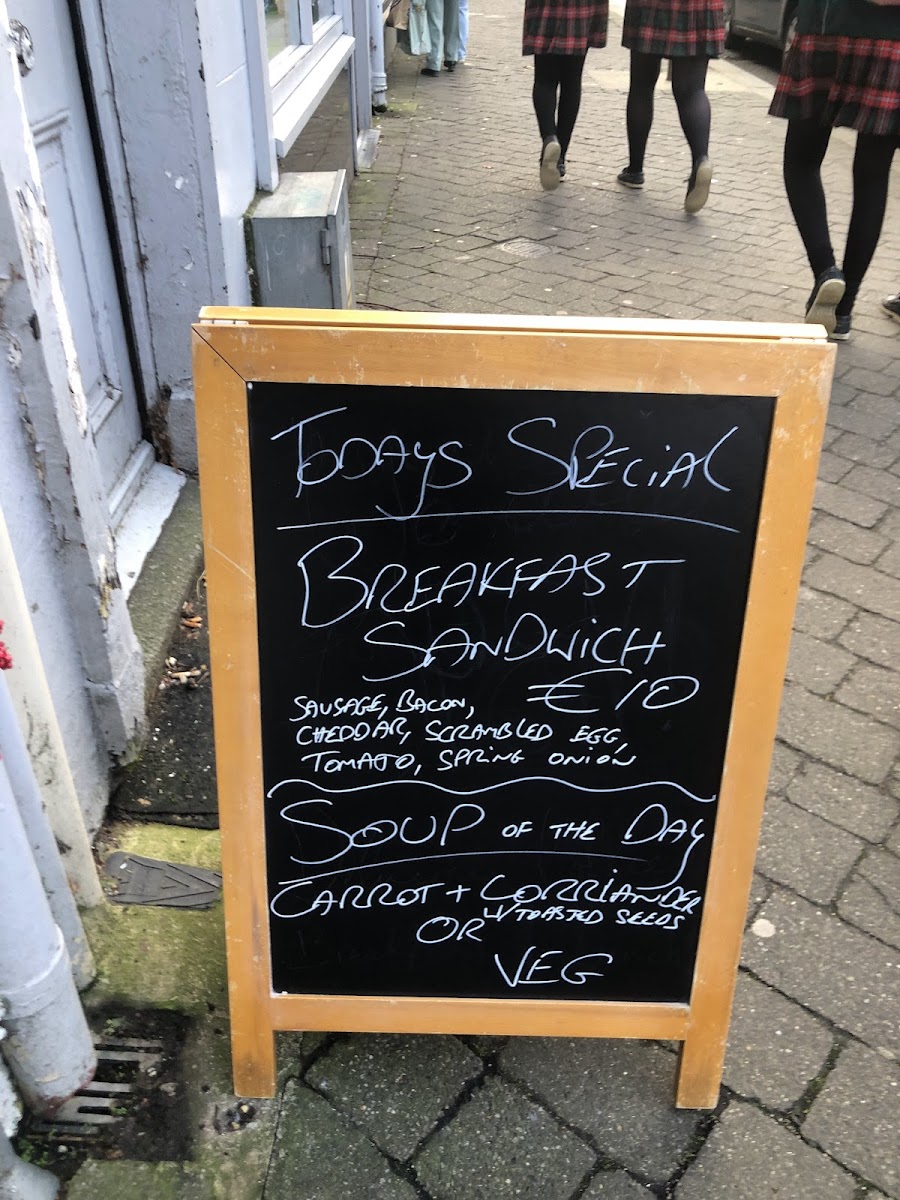 TODAYS SPECIAL
BREAKFAST
SANDWICH
€10
SAUSAGE, BACON,
CHEDDAR, SCRAMBLED EGG,
TOMATO, SPRING ONION
SOUP OF THE DAY
CARROT + CORRIANDER
W/TOASTED SEEDS
OR
VEG